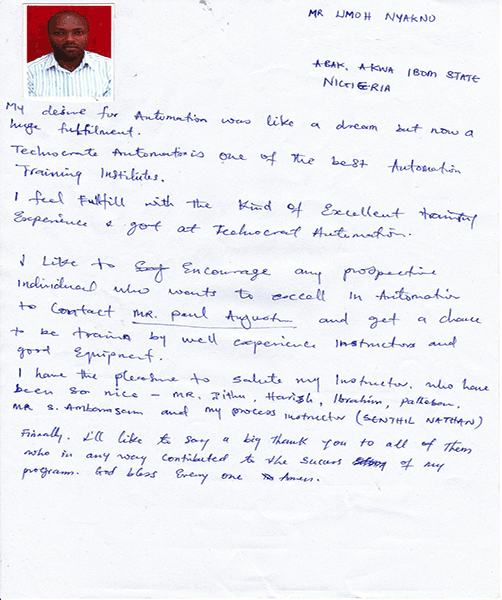 MR UMOH NYAKNO
ABAK, AKWA IBOM STATE
NIGERIA
My desire for Automation was like a dream but now a
huge fulfilment.
Technocrate Automation is one of the best Automation
Training Institutes.
I feel Fulfill with the Kind of Excellent training
Experience I got at Technocrat Automation.
I Like to Encourage any prospective
Individual who wants to excell in Automation
to Contact MR. Paul Augustin and get a chance
to be train by well experience Instructors and
good Equipment.
I have the pleasure to salute my Instructor. who have
been so nice - MR. Jithu, Harish, Ibrahim,
MR S. and my process instructor (SENTHIL NATHAN)
Finally. I'll like to say a big thank you to all of them
who in any way contributed to the success of my
program. God bless Every one Amen.